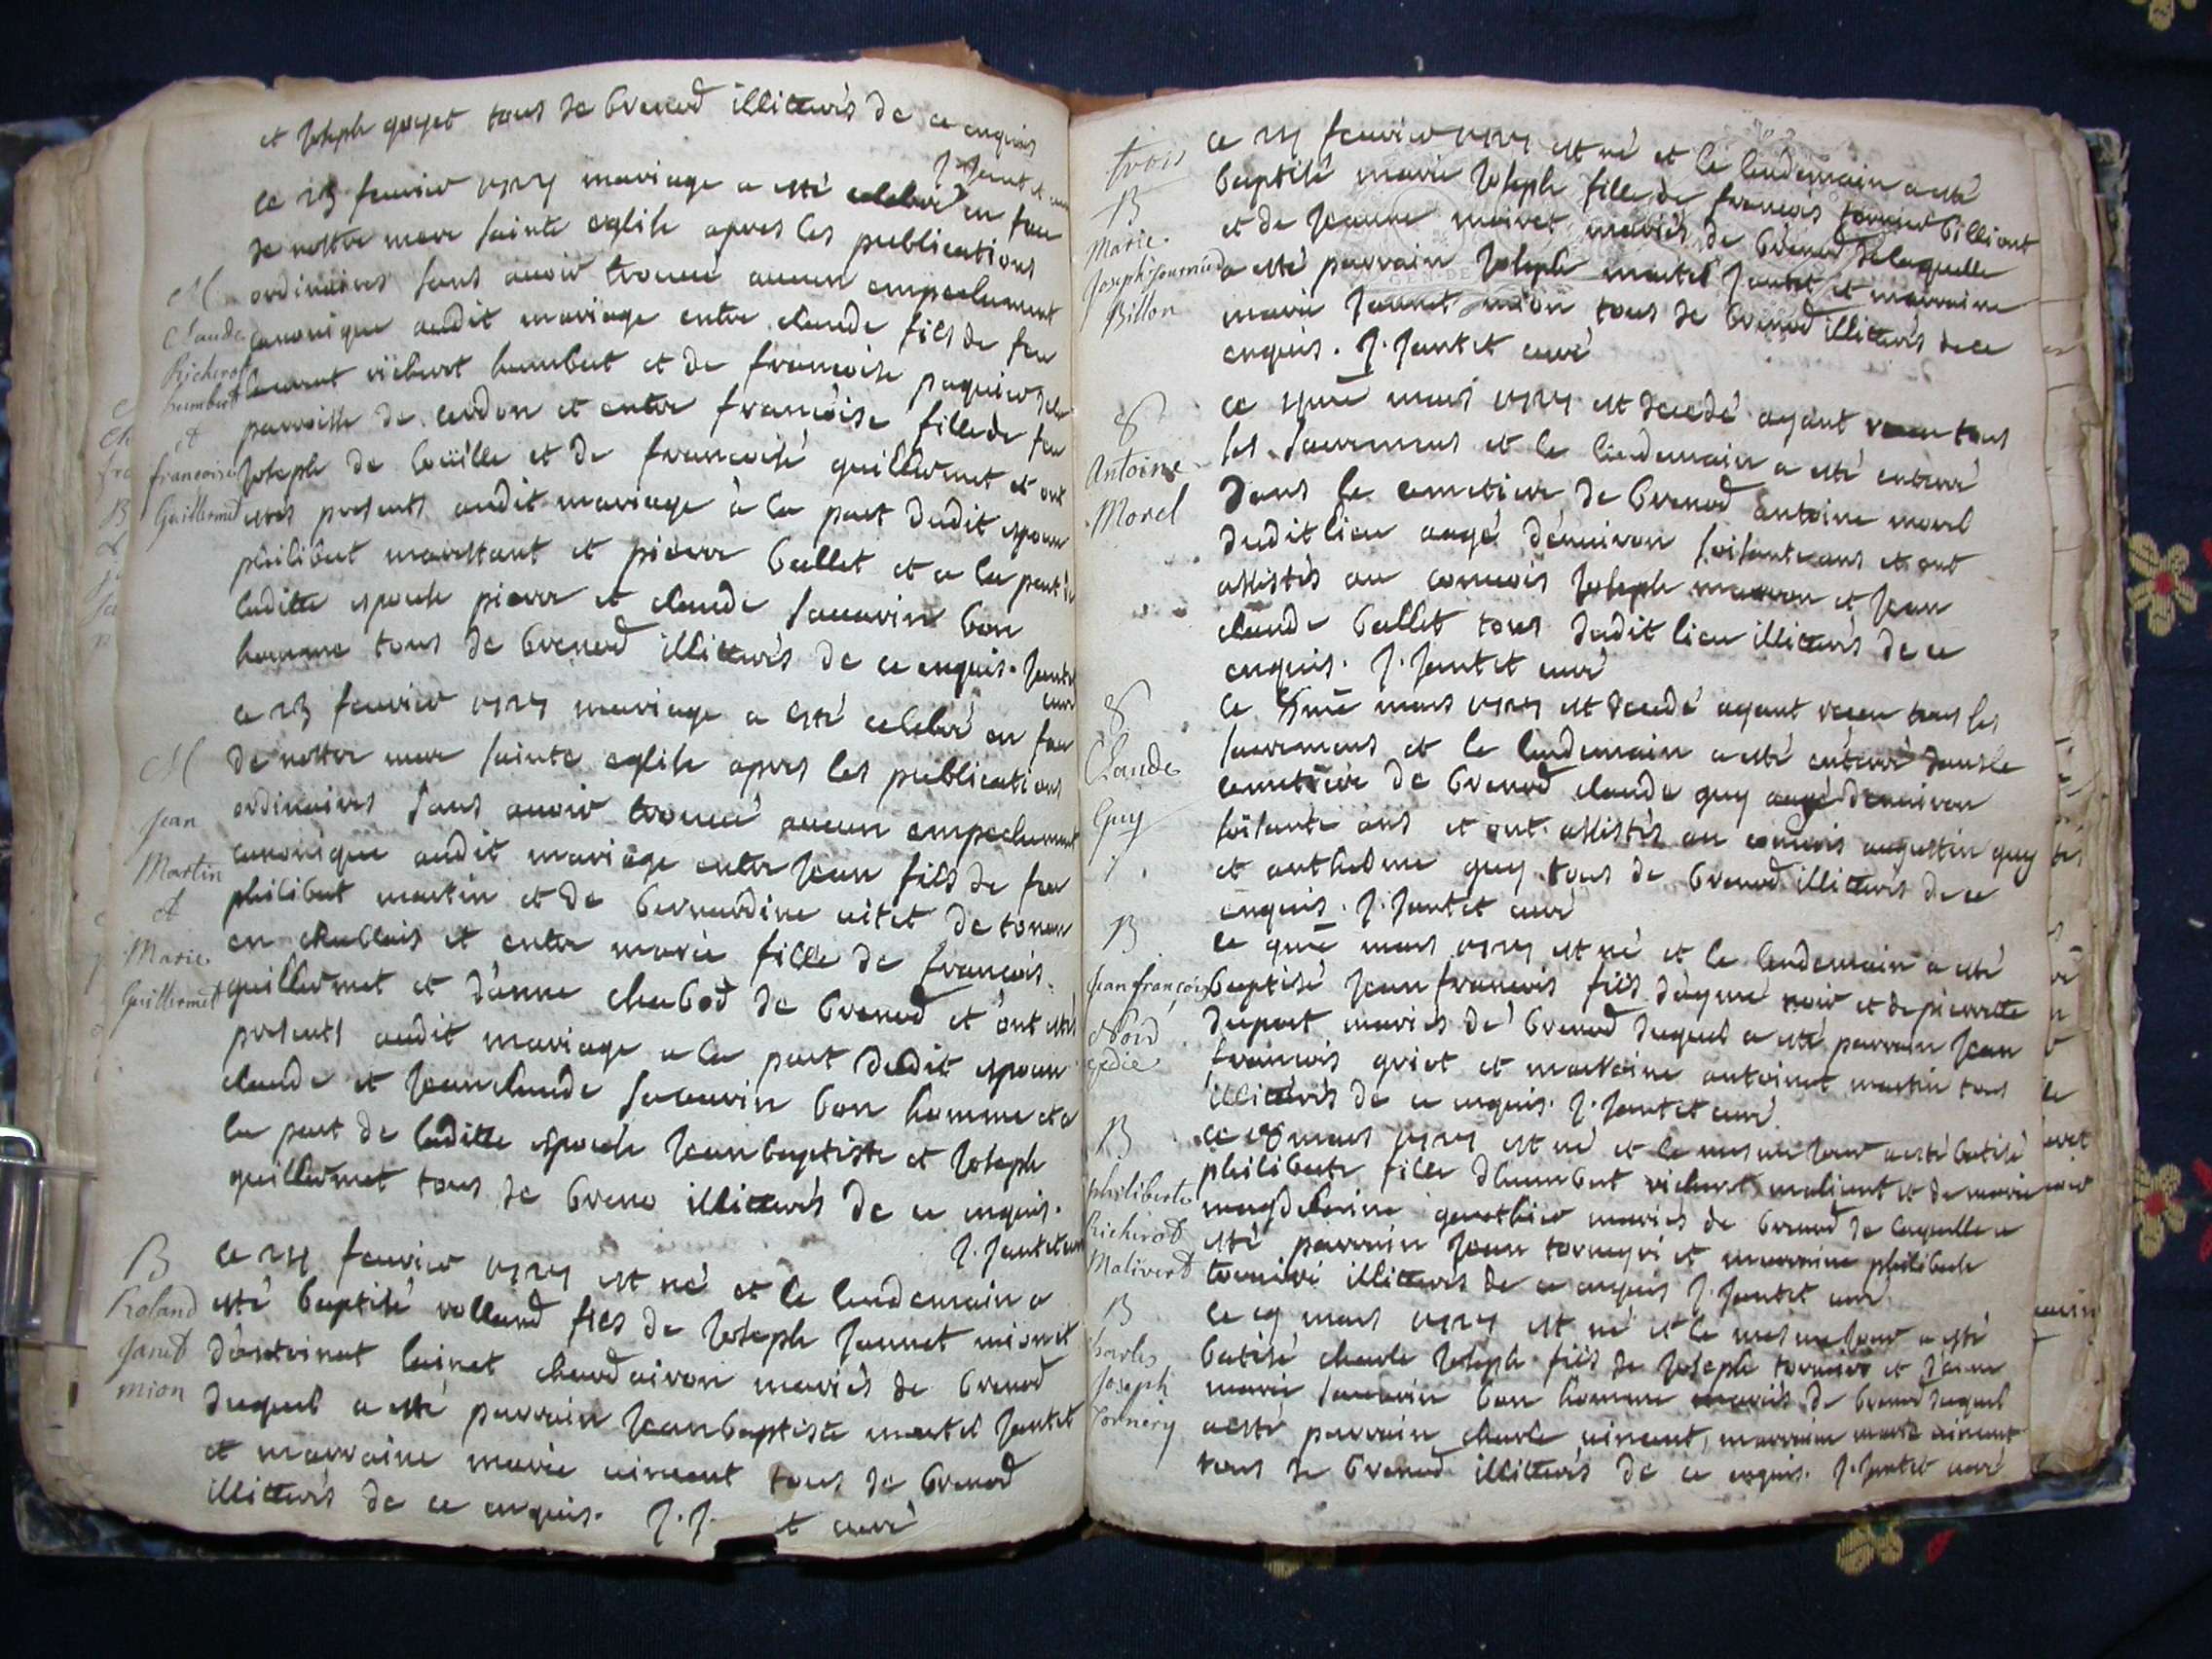 et Joseph goyet tous de brenod illitterés de ce enquis
J. Jantet curé
ce 23 feurier 1727 mariage a esté celebré en face
de nostre mere sainte eglise apres les publications
ordinaires sans auoir trouué aucun empechement
canonique audit mariage entre claude fils de feu
richerot humbert et de francoise paquier de la
parroisse de cerdon et entre francoise fille de feu
Joseph de et de francoise guillermet et ont
estes presents audit mariage à la part dudit epoux
philibert et pierre ballet et a la part de
laditte epouse pierre et claude sauarin bon
homme tous de brenod illitterés de ce enquis. Jantet
curé
M
Claude
Richerot
humbert
et
francoise
Guillermet
ce 23 feurier 1727 mariage a esté celebré en face
de nostre mere sainte eglise apres les publications
ordinaires sans auoir trouué aucun empechement
canonique audit mariage entre Jean fils de feu
philibert martin et de bernardine uitet de tonon
en chablais et entre marie fille de francois
guillermet et d'anne chabod de brenod et ont estés
presents audit mariage a la part dudit epoux
claude et Jean claude sauarin bon homme et a
la part de laditte epouse Jean baptiste et Joseph
guillermet tous de breno illitterés de ce enquis.
J. Jantet curé
M
Jean
Martin
et
Marie
Guillermet
ce 24 feurier 1727 est né et le lendemain a
esté baptisé rolland fils de Joseph Jannet mion et
d'antoinet lainet chaudairon mariés de brenod
duquel a esté parrain Jean baptiste martel Jantet
et marraine marie uincent tous de brenod
illitterés de ce enquis. J. J t curé
B
Roland
Janet
mion
trois
ce feurier 1727 est né et le lendemain a esté
baptisé marie Joseph fille de francois billiont
et de Jeanne moiret mariés de brenod de laquelle
a esté parrain Joseph martel Jantet et marraine
marie Jannet mion tous de brenod illitterés de ce
enquis. J. Jantet curé
B
Marie
Joseph
Billon
ce mars 1727 est decedé ayant receu tous
les sacremens et le lendemain a esté enterré
dans le cemetiere de brenod antoine morel
dudit lieu aagé d'enuiron soisante ans et ont
assistés au conuois Joseph et Jean
claude ballet tous dudit lieu illitterés de ce
enquis. J. Jantet curé
Antoine
Morel
ce mars 1727 est decedé ayant receu tous les
sacremens et le lendemain a esté enterré dans le
cemetiere de brenod claude guy aagé d'enuiron
soisante ans et ont assistés au conuois augustin guy
et anthelme guy tous de brenod illitterés de ce
enquis. J. Jantet curé
Claude
Guy
le mars 1727 est né et le lendemain a esté
baptisé Jean francois fils d'aymé noir et de pierrette
dupont mariés de brenod duquel a esté parrain Jean
francois griot et marraine antoinet martin tous
illitterés de ce enquis. J. Jantet curé
B
Jean françois
Noir
ce mars 1727 est né et le mesme Jour a esté batisé
philiberte fille d'humbert richerot maliuert et de marie
magdelaine mariés de brenod de laquelle a
esté parrain Jean et marraine philiberte
illitterés de ce enquis J. Jantet curé
B
philiberte
Richerot
Malivert
le mars 1727 est né et le mesme Jour a esté
batisé charle Joseph fils de Joseph tornier et d'anne
marie sauarin bon homme mariés de brenod duquel
a esté parrain charle uincent, marraine marie uincent
tous de brenod illitterés de ce enquis. J. Jantet curé
B
Charles
Joseph